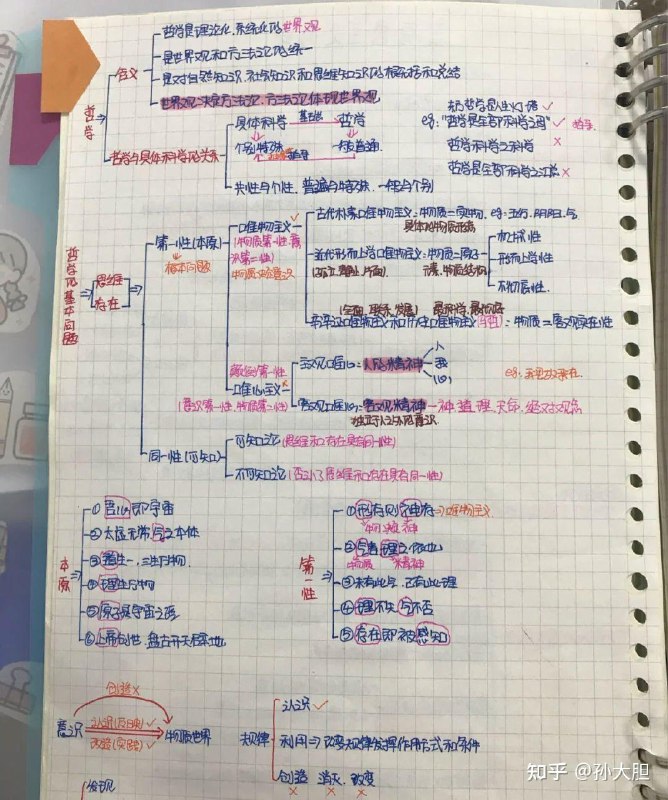 哲学
含义
哲学是理论化、系统化的世界观
是世界观和方法论的统一
是对自然知识、社会知识和思维知识的概括和总结
世界观决定方法论,方法论体现世界观
哲学与具体科学的关系
具体科学 基础 哲学
个别特殊 指导 一般普遍
共性与个性、普遍与特殊、一般与个别
哲学是人生灯塔 ✓
eg:"哲学是全部科学之母" ✓
哲学科学之科学 ×
哲学是全部科学之总 ×
哲学的基本问题
思维
存在
第一性(本原)
根本问题
唯物主义 ✓
(物质第一性,意识第二性)
物质决定意识
古代朴素唯物主义:物质=实物, eg:五行,阴阳,气
具体的物质形态
近代形而上学唯物主义:物质=原子
(孤立,静止,片面)
机械性
形而上学性
不彻底性
(全面,联系,发展) 最科学,最彻底
辩证唯物主义和历史唯物主义:物质=客观实在性
唯心主义 ×
(意识第一性,物质第二性)
主观唯心=人的精神
人
我
心
客观唯心=客观精神—神,道,理,天命,绝对观念
同一性(可知)
可知论(思维和存在具有同一性)
不可知论(否认了思维和存在具有同一性)
本原
①吾心即宇宙
②太虚无常,气之本体
③道生一,三生万物
④理生万物
⑤原子是宇宙之源
⑥上帝创世,盘古开天辟地
第一性
①形存则神存⇒唯物主义
物质 精神
②气者理之依也
物质 精神
③未有此气,已有此理
④理不失气不否
⑤存在即被感知
创造×
意识 认识(反映)✓ 物质世界
改造(实践)✓
规律
认识 ✓
利用⇒改变规律发挥作用方式和条件
创造 消灭 改变
× × ×
发现
知乎 @孙大胆